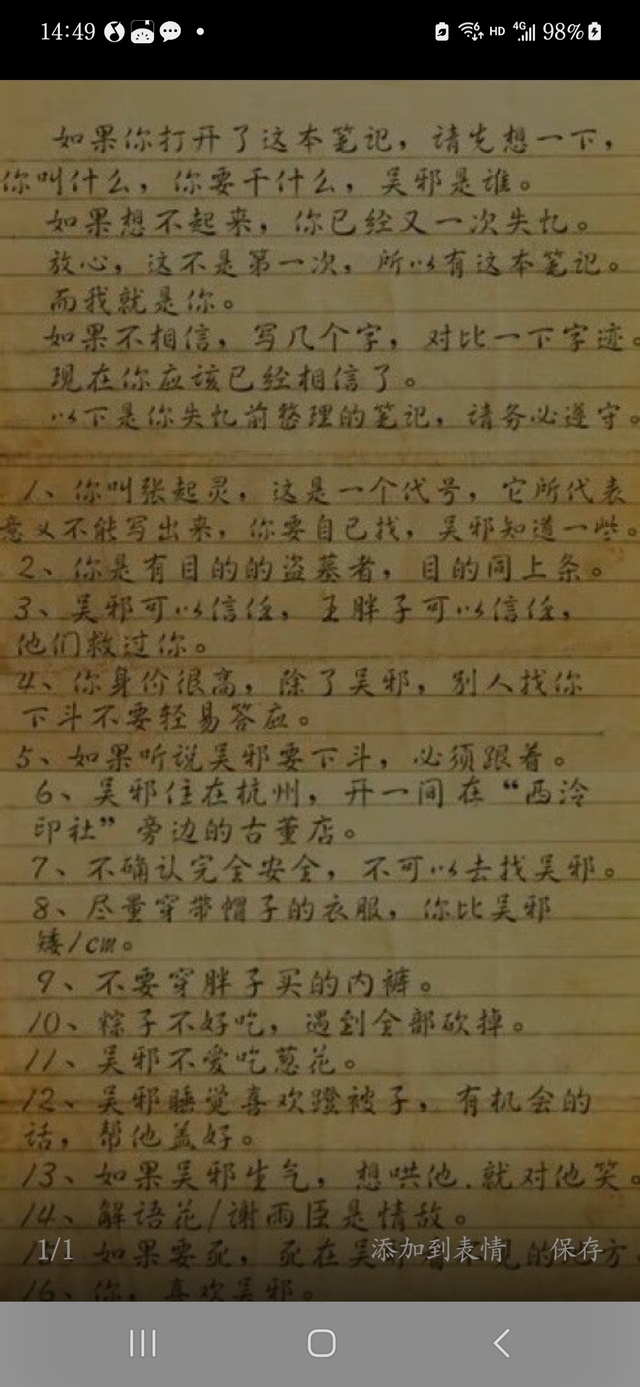 14:49 HD 4G 98%
如果你打开了这本笔记，请先想一下，
你叫什么，你要干什么，吴邪是谁。
如果想不起来，你已经又一次失忆。
放心，这不是第一次，所以有这本笔记。
而我就是你。
如果不相信，写几个字，对比一下字迹。
现在你应该已经相信了。
以下是你失忆前整理的笔记，请务必遵守。
1、你叫张起灵，这是一个代号，它所代表
意义不能写出来，你要自己找，吴邪知道一些。
2、你是有目的的盗墓者，目的同上条。
3、吴邪可以信任，王胖子可以信任，
他们救过你。
4、你身价很高，除了吴邪，别人找你
下斗不要轻易答应。
5、如果听说吴邪要下斗，必须跟着。
6、吴邪住在杭州，开一间在“西泠
印社”旁边的古董店。
7、不确认完全安全，不可以去找吴邪。
8、尽量穿带帽子的衣服，你比吴邪
矮1cm。
9、不要穿胖子买的内裤。
10、粽子不好吃，遇到全部砍掉。
11、吴邪不爱吃葱花。
12、吴邪睡觉喜欢蹬被子，有机会的
话，帮他盖好。
13、如果吴邪生气，想哄他.就对他笑。
14、解语花/谢雨臣是情敌。
如果要死，死在吴邪看不见的地方
16、你，喜欢吴邪。
1/1 添加到表情 保存